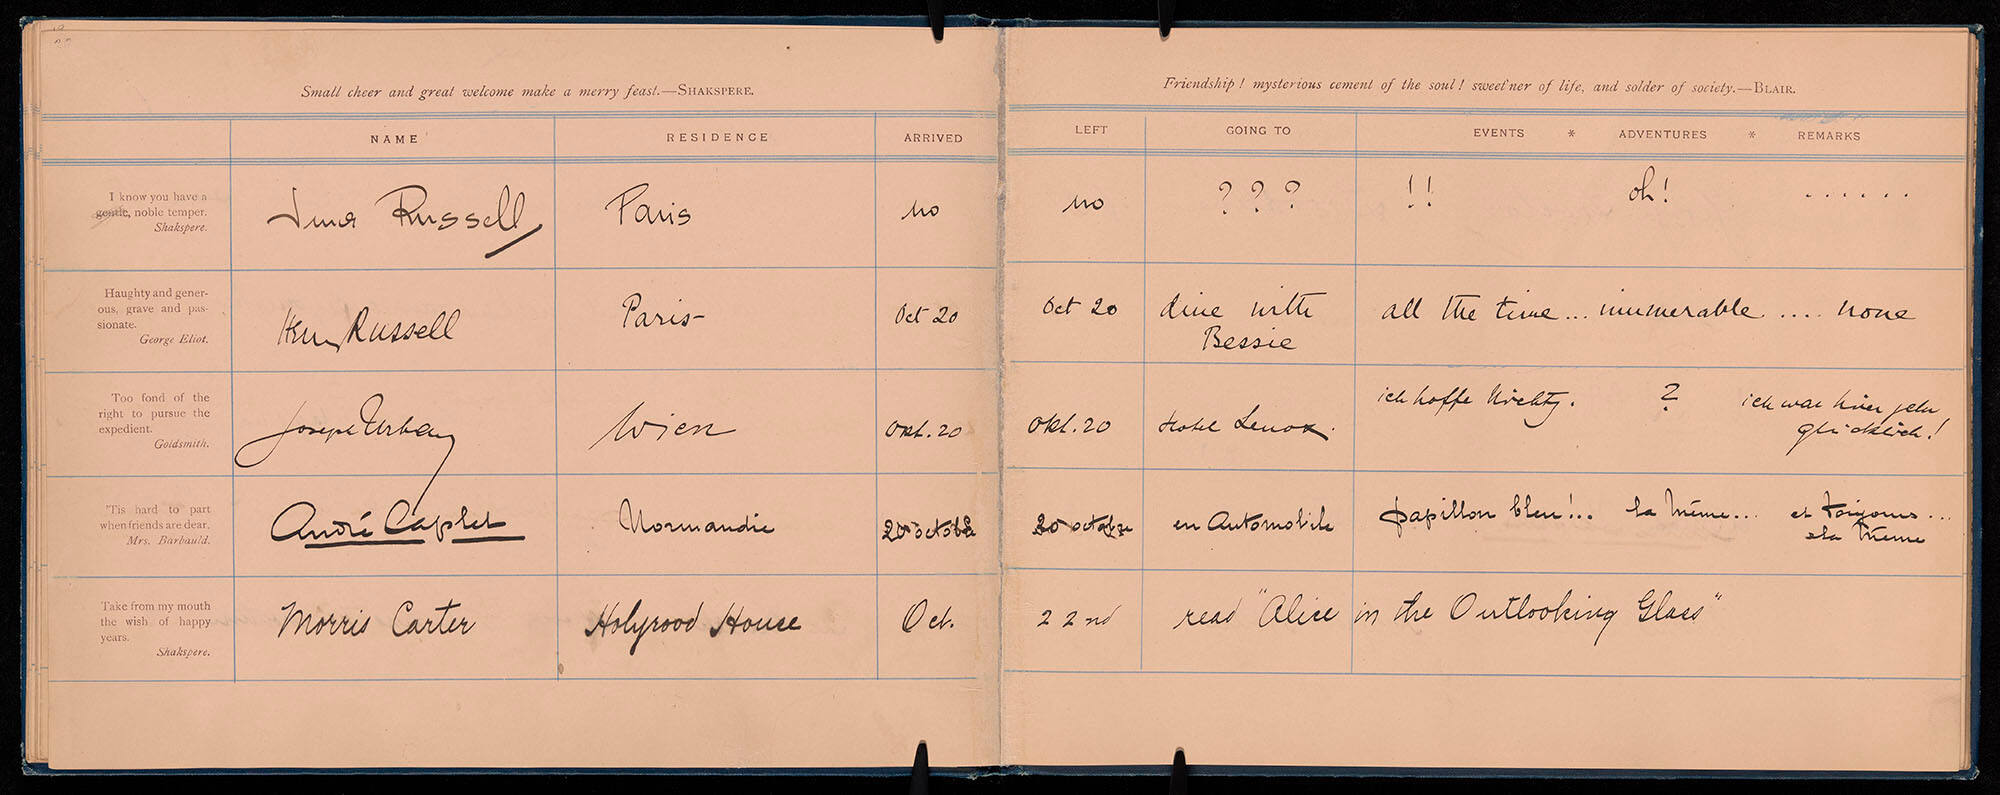 Small cheer and great welcome make a merry feast.—SHAKSPERE.
NAME RESIDENCE ARRIVED
I know you have a
gentle, noble temper.
Shakspere.
Nina Russell Paris no
Haughty and gener-
ous, grave and pas-
sionate.
George Eliot.
Henry Russell Paris- Oct 20
Too fond of the
right to pursue the
expedient.
Goldsmith.
Joseph Urban Wien Okt. 20
'Tis hard to part
when friends are dear.
Mrs. Barbauld.
André Caplet Normandie 20 octobre
Take from my mouth
the wish of happy
years.
Shakspere.
Morris Carter Holyrood House Oct.
Friendship! mysterious cement of the soul! sweet'ner of life, and solder of society.—BLAIR.
LEFT GOING TO EVENTS * ADVENTURES * REMARKS
no ? ? ? !! oh! ......
Oct 20 dine with all the time... innumerable .... none
Bessie
Okt. 20 Hotel Lenox. ich hoffe Nichts. ? ich war hier sehr
glücklich!
20 octobre en Automobile papillon bleu!.. la même... et toujours...
la même
22nd read "Alice in the Outlooking Glass"